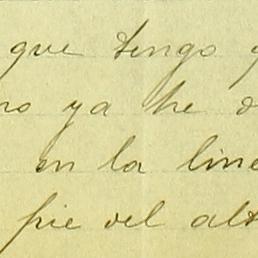 que tengo q
no ya he d
en la line
pie del alt